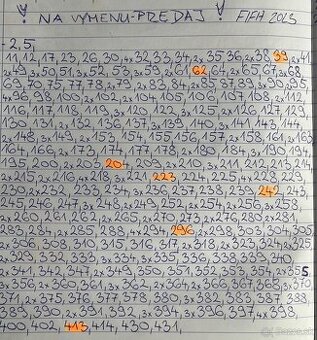 ! NA VÝMENU-PREDAJ! FIFA 2013
- 2,5,
11,12,17,23,26,30,4x32,33,34,2x35,36,2x38,39,2x41
2x49,3x50,51,3x52,53,3x53,2x61,62,64,2x65,67,3x68
69,70,75,77,78,2x79,2x83,84,2x85,97,89,3x90,95,
4x96,98,100,102,2x102,2x104,2x105,106,107,108,2x112,
116,118,119,120,123,2x125,2x127,128,129,
130,131,2x132,136,137,3x139,140,3x141,143,144,
2x148,3x149,2x153,154,155,156,157,2x158,161,2x163
164,166,2x173,174,177,178,2x180,184,3x190,194
195,200,2x203,204,209,2x210,3x211,212,213,214,
2x215,2x216,4x218,221,223,224,225,4x228,229,
230,2x232,233,234,3x236,237,238,239,242,243,
245,246,247,3x248,2x249,252,2x254,2x256,3x258
2x260,261,262,2x265,2x270,273,2x276,280,2x281,
283,284,2x285,288,4x294,296,2x298,303,304,305,
2x306,308,310,315,316,317,3x318,2x323,324,2x325,
2x329,332,333,334,3x334,3x335,336,339,338,339,340
2x341,342,347,2x349,350,351,352,353,354,2x355
356,2x358,2x360,361,362,2x364,2x366,367,368,3x370
371,375,376,377,378,380,3x382,383,387,388,
389,390,2x391,392,3x394,3x396,397,4x398,
400,402,413,414,430,431,